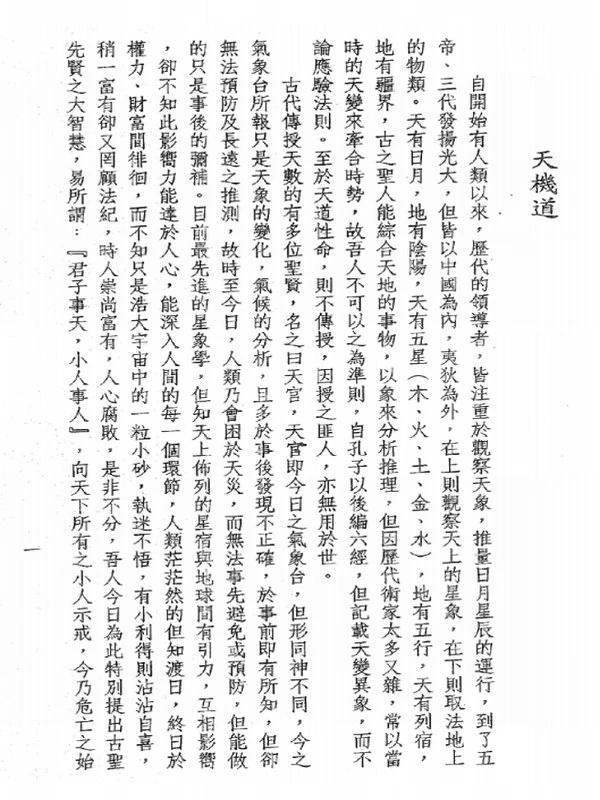 天機道
自開始有人類以來，歷代的領導者，皆注重於觀察天象，推量日月星辰的運行，到了五
帝、三代發揚光大，但皆以中國為內，夷狄為外，在上則觀察天上的星象，在下則取法地上
的物類。天有日月，地有陰陽，天有五星（木、火、土、金、水），地有五行，天有列宿，
地有疆界，古之聖人能綜合天地的事物，以象來分析推理，但因歷代術家太多又雜，常以當
時的天變來牽合時勢，故吾人不可以之為準則，自孔子以後編六經，但記載天變異象，而不
論應驗法則。至於天道性命，則不傳授，因授之匪人，亦無用於世。
古代傳授天數的有多位聖賢，名之曰天官，天官即今日之氣象台，但形同神不同，今之
氣象台所報只是天象的變化，氣候的分析，且多於事後發現不正確，於事前即有所知，但卻
無法預防及長遠之推測，故時至今日，人類乃會困於天災，而無法事先避免或預防，但能做
的只是事後的彌補。目前最先進的星象學，但知天上佈列的星宿與地球間有引力，互相影響
，卻不知此影響力能達於人心，能深入人間的每一個環節，人類茫茫然的但知渡日，終日於
權力、財富間徘徊，而不知只是浩大宇宙中的一粒小砂，執迷不悟，有小利得則沾沾自喜，
稍一富有卻又罔顧法紀，時人崇尚富有，人心腐敗，是非不分，吾人今日為此特別提出古聖
先賢之大智慧，易所謂：『君子事天，小人事人』，向天下所有之小人示戒，今乃危亡之始
一